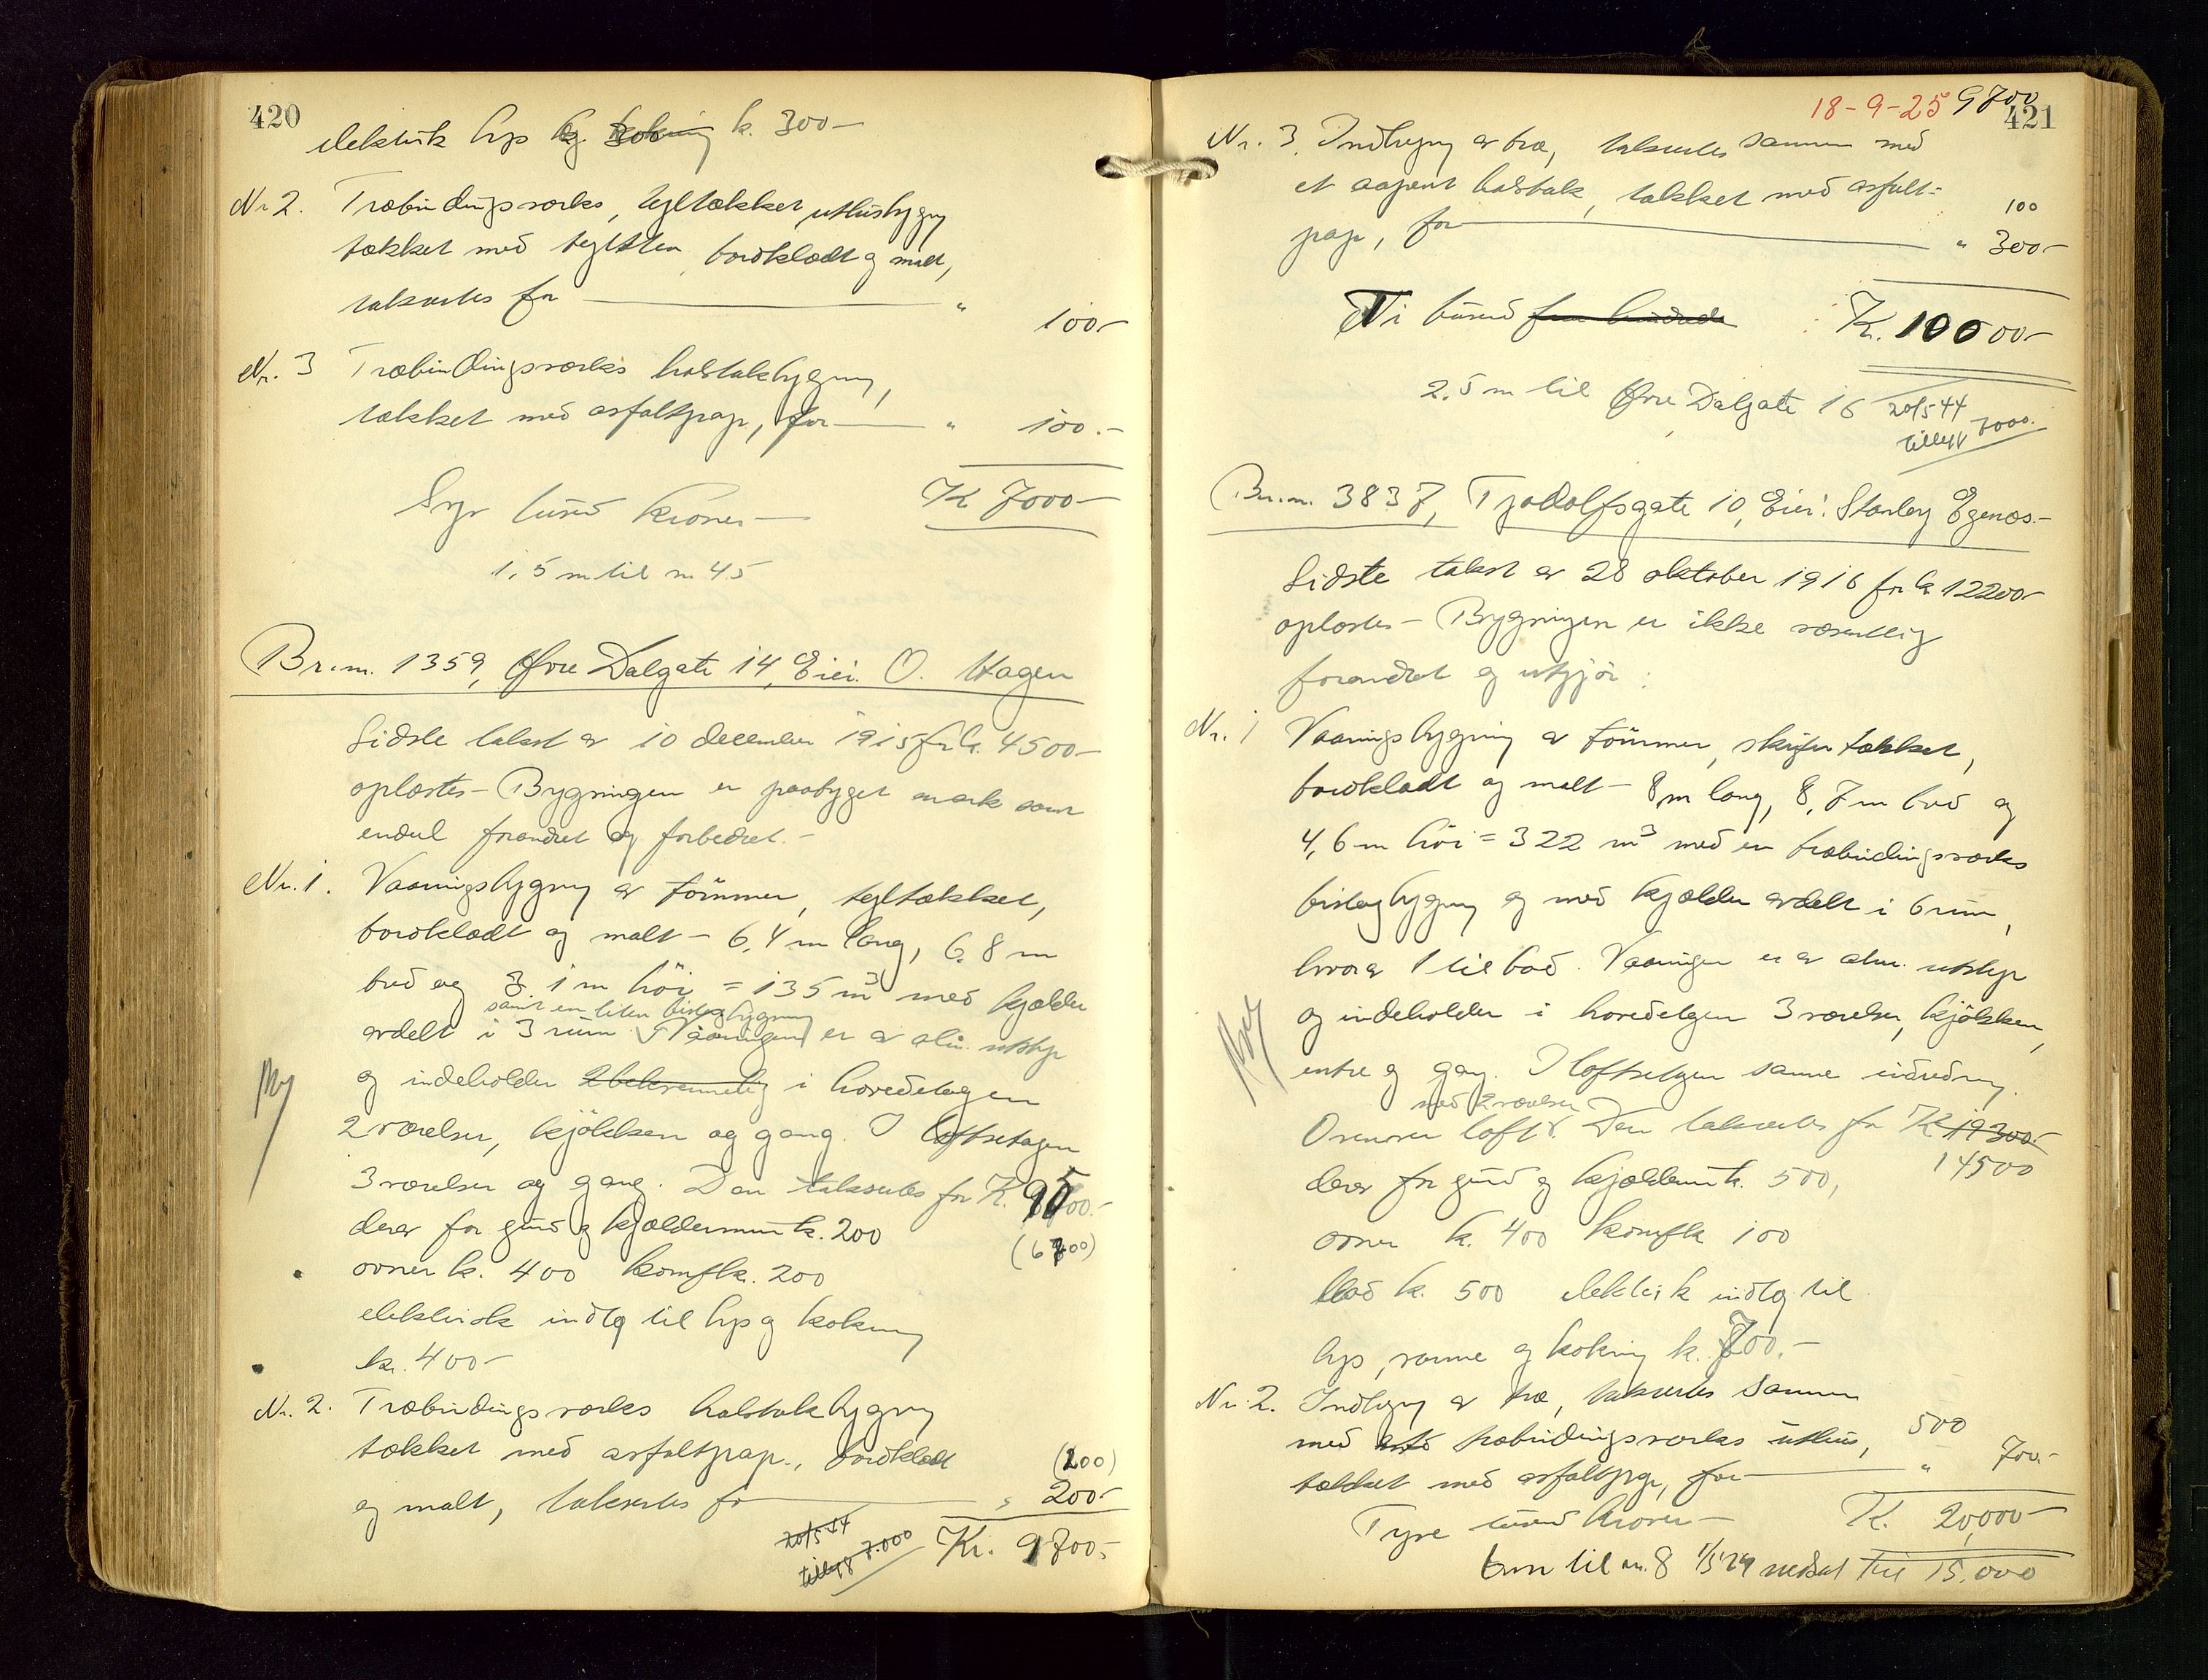 420
elektrisk lys og kokning k. 300-
Nr 2. Træbindingsværks, tegltækket, uthusbygng
tækket med teglsten, bordklædt og malt,
takseres for " 100-
Nr. 3 Træbindingsværks halvtakbygning,
tækket med asfaltpap, for " 100.-
Syv tusend kroner- K 7000-
1,5 m til nr 45
Br.nr. 1359, Øvre Dalgate 14, Eier: O. Hagen
Sidste takst av 10 december 1915 for k. 4500-
oplæstes- Bygningen er paabygget en ark samt
endel forandret og forbedret.-
Nr. 1. Vaaningsbygning av tømmer, tegltækket,
bordklædt og malt - 6,4 m lang, 6,8 m
bred og 3,1 m høi = 135 m3 med kjælder
samt en liten bislagbygning
avdelt i 3 rum. Vaaningen er av alm. utstyr
og indeholder i hovedetagen
2 værelser, kjøkken og gang. I loftsetagen
3 værelser og gang. Den takseres for K. 9500.-
derav for grund og kjældermur k. 200 (6700)
ovner k. 400 komf k. 200
elektrisk indlg til lys og kokning
kr. 400-
Nr. 2. Træbindingsværks halvtakbygning
tækket med asfaltpap., bordklædt (200)
og malt, takseres for " 200-
20/5 44
tillegg 7.000 Kr. 9700.-
18-9-25 9700
421
Nr. 3. Indhegng av træ, takseres sammen med
et aapent halvtak, tækket med asfalt- 100
pap, for " 300-
Ti tusend fem hundrede K. 10000-
2,5 m til Øvre Dalgate 16 20/5 44
tillegg 7000.
Br.nr. 3837, Tjodolfsgate 10, Eier: Stanley Egenæs.-
Sidste takst av 28 oktober 1916 for k 12200-
oplæstes - Bygningen er ikke væsentlig
forandret og utgjør:
Nr. 1 Vaaningsbygning av tømmer, skifertækket,
bordklædt og malt - 8 m lang, 8,7 m bred og
4,6 m høi = 322 m3 med en træbindingsværks
bislagbygning og med kjælder avdelt i 6 rum,
hvorav 1 til bad. Vaaningen er av alm. utstyr
og indeholder i hovedetagen 3 værelser, kjøkken,
entre og gang. I loftsetagen samme indredning.
med 2 værelser
Ovenover loft. Den takseres for K 19300.-
14500
derav for grund og kjældermur k. 500,
ovner k. 400 komf k 100
bad k. 500 elektrisk indlg til
lys, varme og kokning k. 700.-
Nr. 2. Indhegng av træ, takseres sammen
med træbindingsværks uthus, 500
tækket med asfaltpap, for " 700.-
Tyve tusend kroner- K. 20,000-
6 m til nr. 8 1/5 29 nedsat til 15.000